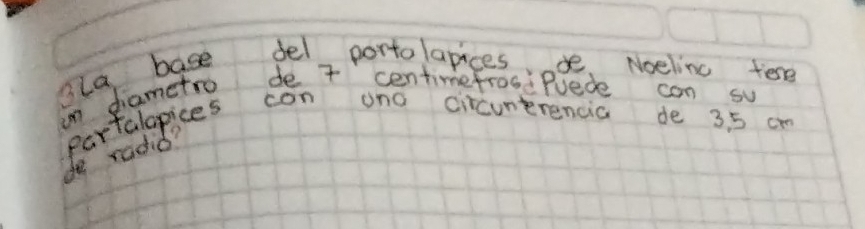 3 La base del portalapices de Noelina tiene
un diametro de 7 centimetros ¿Puede con su
partalapices con una circunferencia de 3,5 cm
de radio?